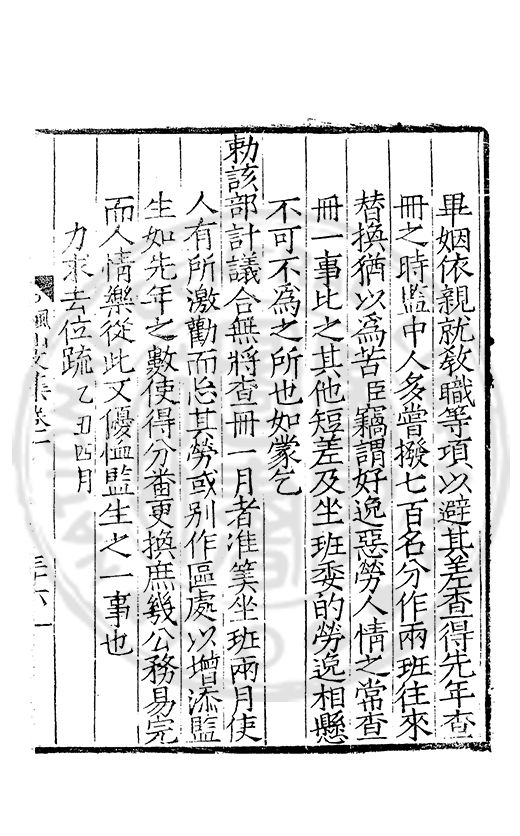 畢姻依親就教職等項以避其差查得先年查
冊之時監中人多嘗撥七百名分作兩班往來
替換猶以為苦臣竊謂好逸惡勞人情之常查
冊一事比之其他短差及坐班委的勞逸相懸
不可不為之所也如蒙乞
勑該部計議合無將查冊一月者准筭坐班兩月使
人有所激勸而忘其勞或別作區處以增添監
生如先年之數使得分番更換庶幾公務易完
而人情樂從此又優恤監生之一事也
力求去位疏乙丑四月
楓山文集卷一
三十六